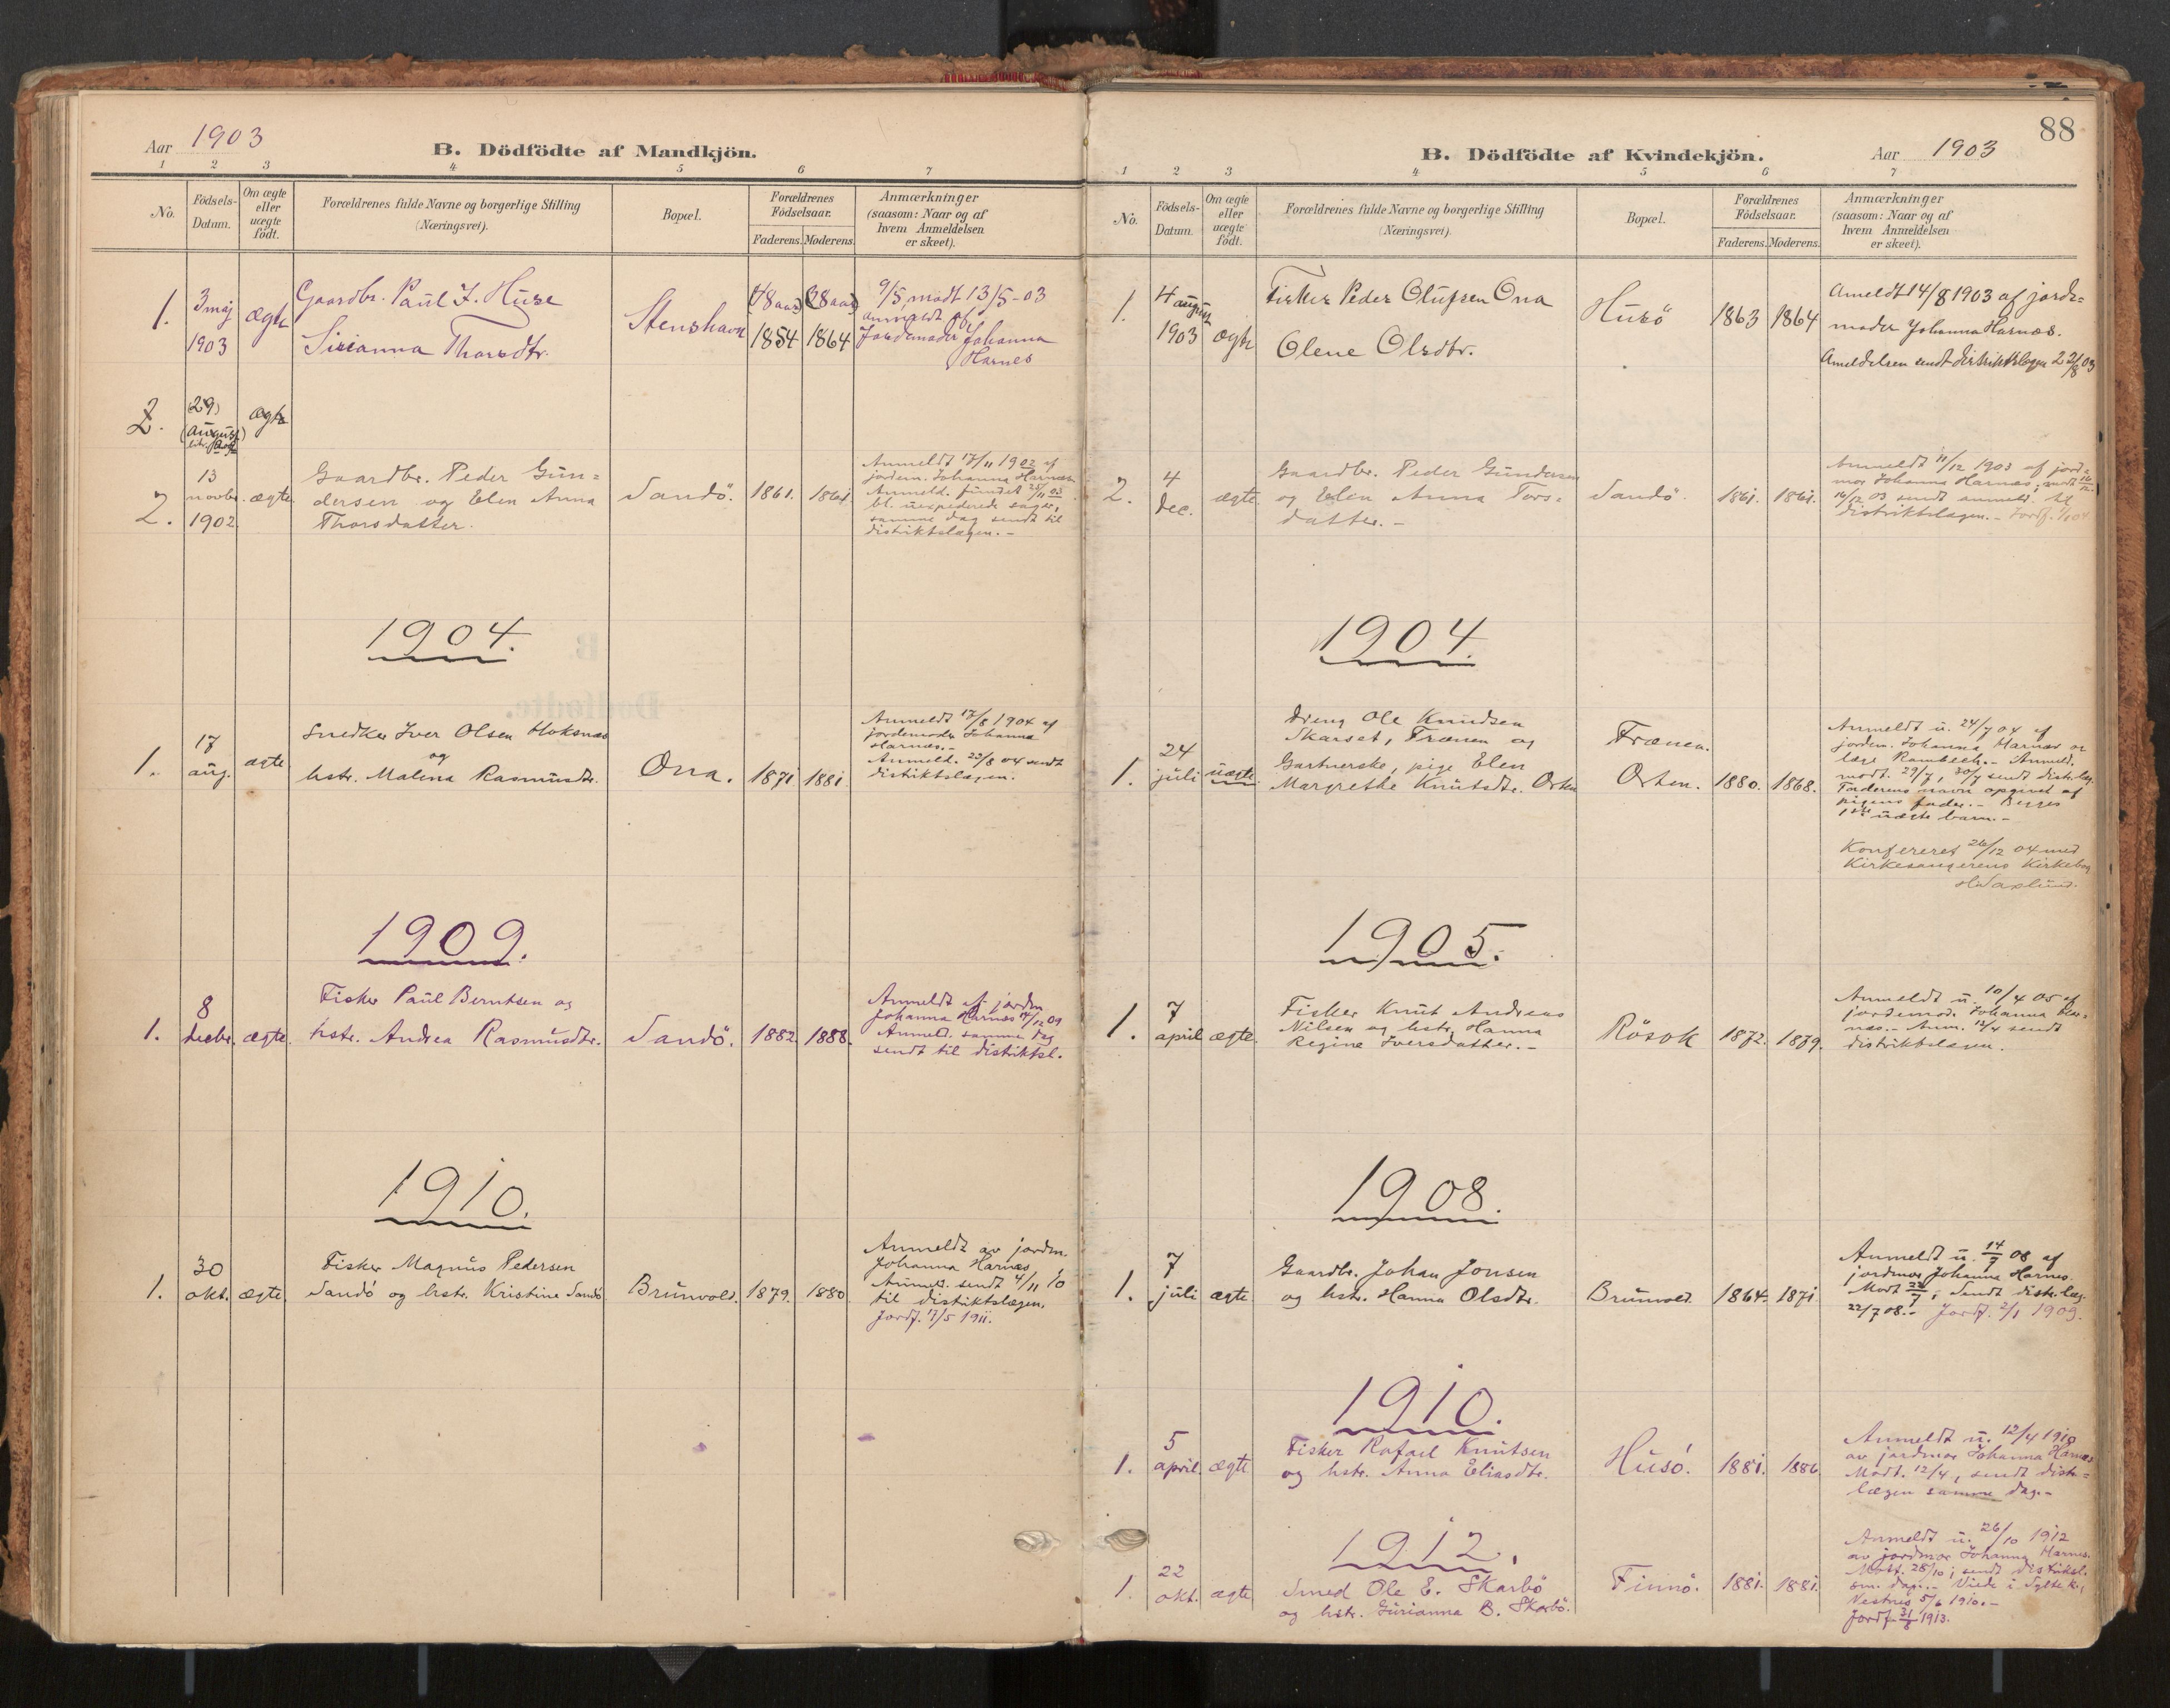 Aar 1903
B. Dödfödte af Mandkjön.
1 2 3 4 5 6 7
No.
Födsels-
Datum.
Om ægte
eller
uægte
födt.
Forældrenes fulde Navne og borgerlige Stilling
(Næringsvei).
Bopæl.
Forældrenes
Födselsaar.
Faderens. Moderens.
Anmærkninger
(saasom: Naar og af
hvem Anmeldelsen
er skeet).
1.
3 maj
1903
ægte
Gaardbr. Paul J. Huse
Sirianna Thorsdtr.
Stenshavn
(48 aar) (38 aar)
1854 1864
9/5 modt 13/5-03
anmeldt af
Jordemoder Johanna
Harnes
2.
(29)
(august)
ægte
2.
13
novbr.
1902.
ægte
Gaardbr. Peder Gun=
dersen og Elen Anna
Thorsdatter.
Sandö.
1861. 1861.
Anmeldt 17/11 1902 af
jordem. Johanna Harnæs.
Anmeld. fundet 25/11 03
bl. uexpederede sager,
samme dag sendt til
distriktslægen.-
1904.
1.
17
aug.
ægte
Snedker Iver Olsen Hoksnæs
og
hstr. Malena Rasmusdtr.
Ona.
1871. 1881.
Anmeldt 17/8 1904 af
jordemoder Johanna
Harnæs.-
Anmeld. 23/8 04 sendt
distriktslægen.
1909.
1.
8
decbr.
ægte.
Fisker Paul Berntsen og
hstr. Andrea Rasmusdtr.
Sandö.
1882. 1888.
Anmeldt af jordm.
Johanna Harnæs 14/12 09
Anmeld. samme dag
sendt til distriktsl.
1910.
1.
30
okt.
ægte.
Fisker Magnus Pedersen
Sandö og hstr. Kristine Sandö
Brunvold.
1879. 1880
Anmeldt av jordm.
Johanna Harnæs
Anmeld. sendt 4/11 10
til distriktslægen.
Jordf. 17/5 1911.
88
B. Dödfödte af Kvindekjön.
Aar 1903
1 2 3 4 5 6 7
No.
Födsels-
Datum.
Om ægte
eller
uægte
födt.
Forældrenes fulde Navne og borgerlige Stilling
(Næringsvei).
Bopæl.
Forældrenes
Födselsaar.
Faderens. Moderens.
Anmærkninger
(saasom: Naar og af
hvem Anmeldelsen
er skeet).
1.
4 august
1903
ægte
Fisker Peder Olufsen Ona
Olene Olsdtr.
Husö
1863 1864
Ameldt 14/8 1903 af jorde=
moder Johanna Harnæs.
Ameldelsen sendt distriktslægen 22/8 03
2.
4
dec.
ægte
Gaardbr. Peder Gundersen
og Elen Anna Tors=
datter.-
Sandö.
1861. 1861.
Anmeldt 11/12 1903 af jord=
mor Johanna Harnæs, modt 16/12.
16/12 03 sendt anmeld. til
distriktslægen.- Jordf. 1/1 04
1904.
1.
24
juli
uægte
Dreng Ole Knudsen
Skarset, Frænen og
Gartnerske, pige Elen
Margrethe Knutsdtr. Orten
Frænen.
Orten.
1880. 1868.
Anmeldt u. 24/7 04 af
jordem. Johanna Harnæs og
læge Rambech.- Anmeld.
modt. 29/7, 30/7 sendt distr.læg.
Faderens navn opgivet af
pigens fader.- Begges
1ste uægte barn.-
Konfereret 26/12 04 med
Kirkesangerens Kirkebog
1905.
1.
7
april
ægte.
Fisker Knut Andreas
Nilsen og hstr. Hanna
Regine Iversdatter.-
Rösok
1872. 1879.
Anmeldt u. 10/4 05 af
jordemod. Johanna Har=
næs.- Anm. 12/4 sendt
distriktslægen.
1908.
1.
7
juli
ægte
Gaardbr. Johan Jonsen
og hstr. Hanna Olsdtr.
Brunvold.
1864. 1871.
Anmeldt u. 14/7 08 af
jordmor Johanna Harnes.
Modt 22/7, sendt distr.læg.
22/7 08.- Jordf. 2/1 1909.
1910.
1.
5
april.
ægte
Fisker Rafael Knutsen
og hstr. Anna Eliasdtr.
Husö.
1881. 1886
Anmeldt u. 12/4 1910
av jordmor Johanna Harnæs
Modt. 12/4, sendt distr=
lægen samme dag.-
1912.
1.
22
okt.
ægte
Smed Ole E. Skarbö
og hstr. Gurianna B. Skarbö.
Finnö.
1881. 1881.
Anmeldt u. 26/10 1912
av jordmor Johanna Harnes.
Mott. 28/10; sendt distriktsl.
sm. dag.- Viede i Sylte k.,
Vestnes 5/6 1910.-
Jordf. 31/8 1913.